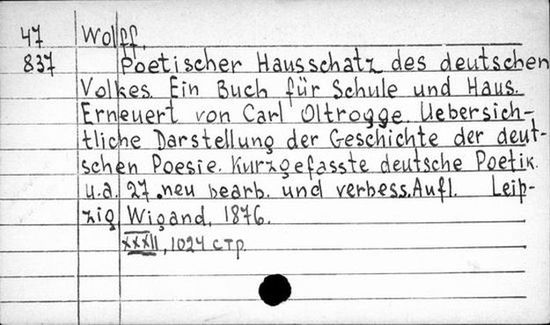 47 Wolff.
837 Poetischer Hausschatz des deutschen
Volkes. Ein Buch für Schule und Haus.
Erneuert von Carl Oltrogge. Uebersich-
tliche Darstellung der Geschichte der deut-
schen Poesie. Kurzgefasste deutsche Poetik
u.a. 27. neu bearb. und verbess. Aufl. Leip-
zig Wigand, 1876.
XXXII, 1024 стр.